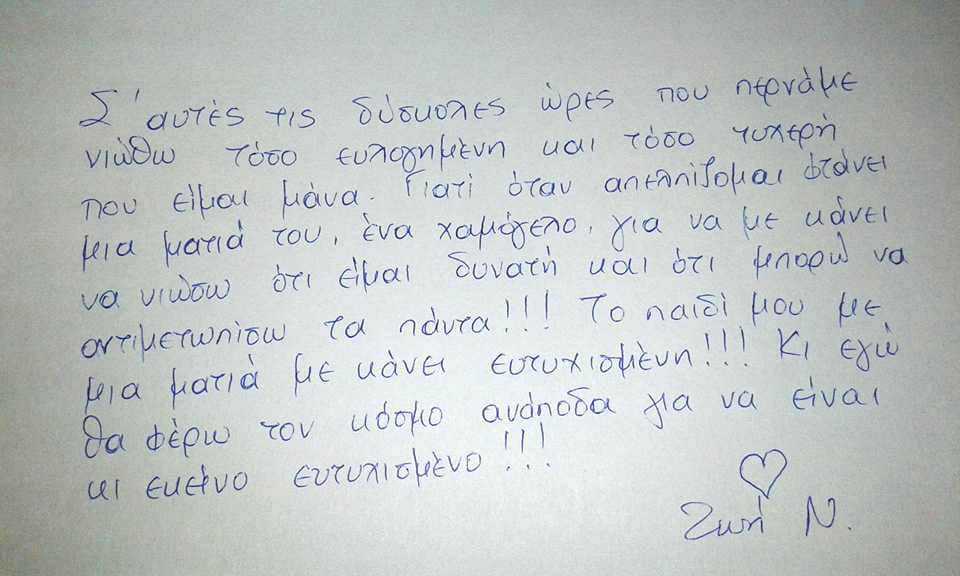 Σ' αυτές τις δύσκολες ώρες που περνάμε
νιώθω τόσο ευλογημένη και τόσο τυχερή
που είμαι μάνα. Γιατί όταν απελπίζομαι φτάνει
μια ματιά του, ένα χαμόγελο, για να με κάνει
να νιώσω ότι είμαι δυνατή και ότι μπορώ να
αντιμετωπίσω τα πάντα!!! Το παιδί μου με
μια ματιά με κάνει ευτυχισμένη!!! Κι εγώ
θα φέρω τον κόσμο ανάποδα για να είναι
κι εκείνο ευτυχισμένο!!!
Ζωή Ν.